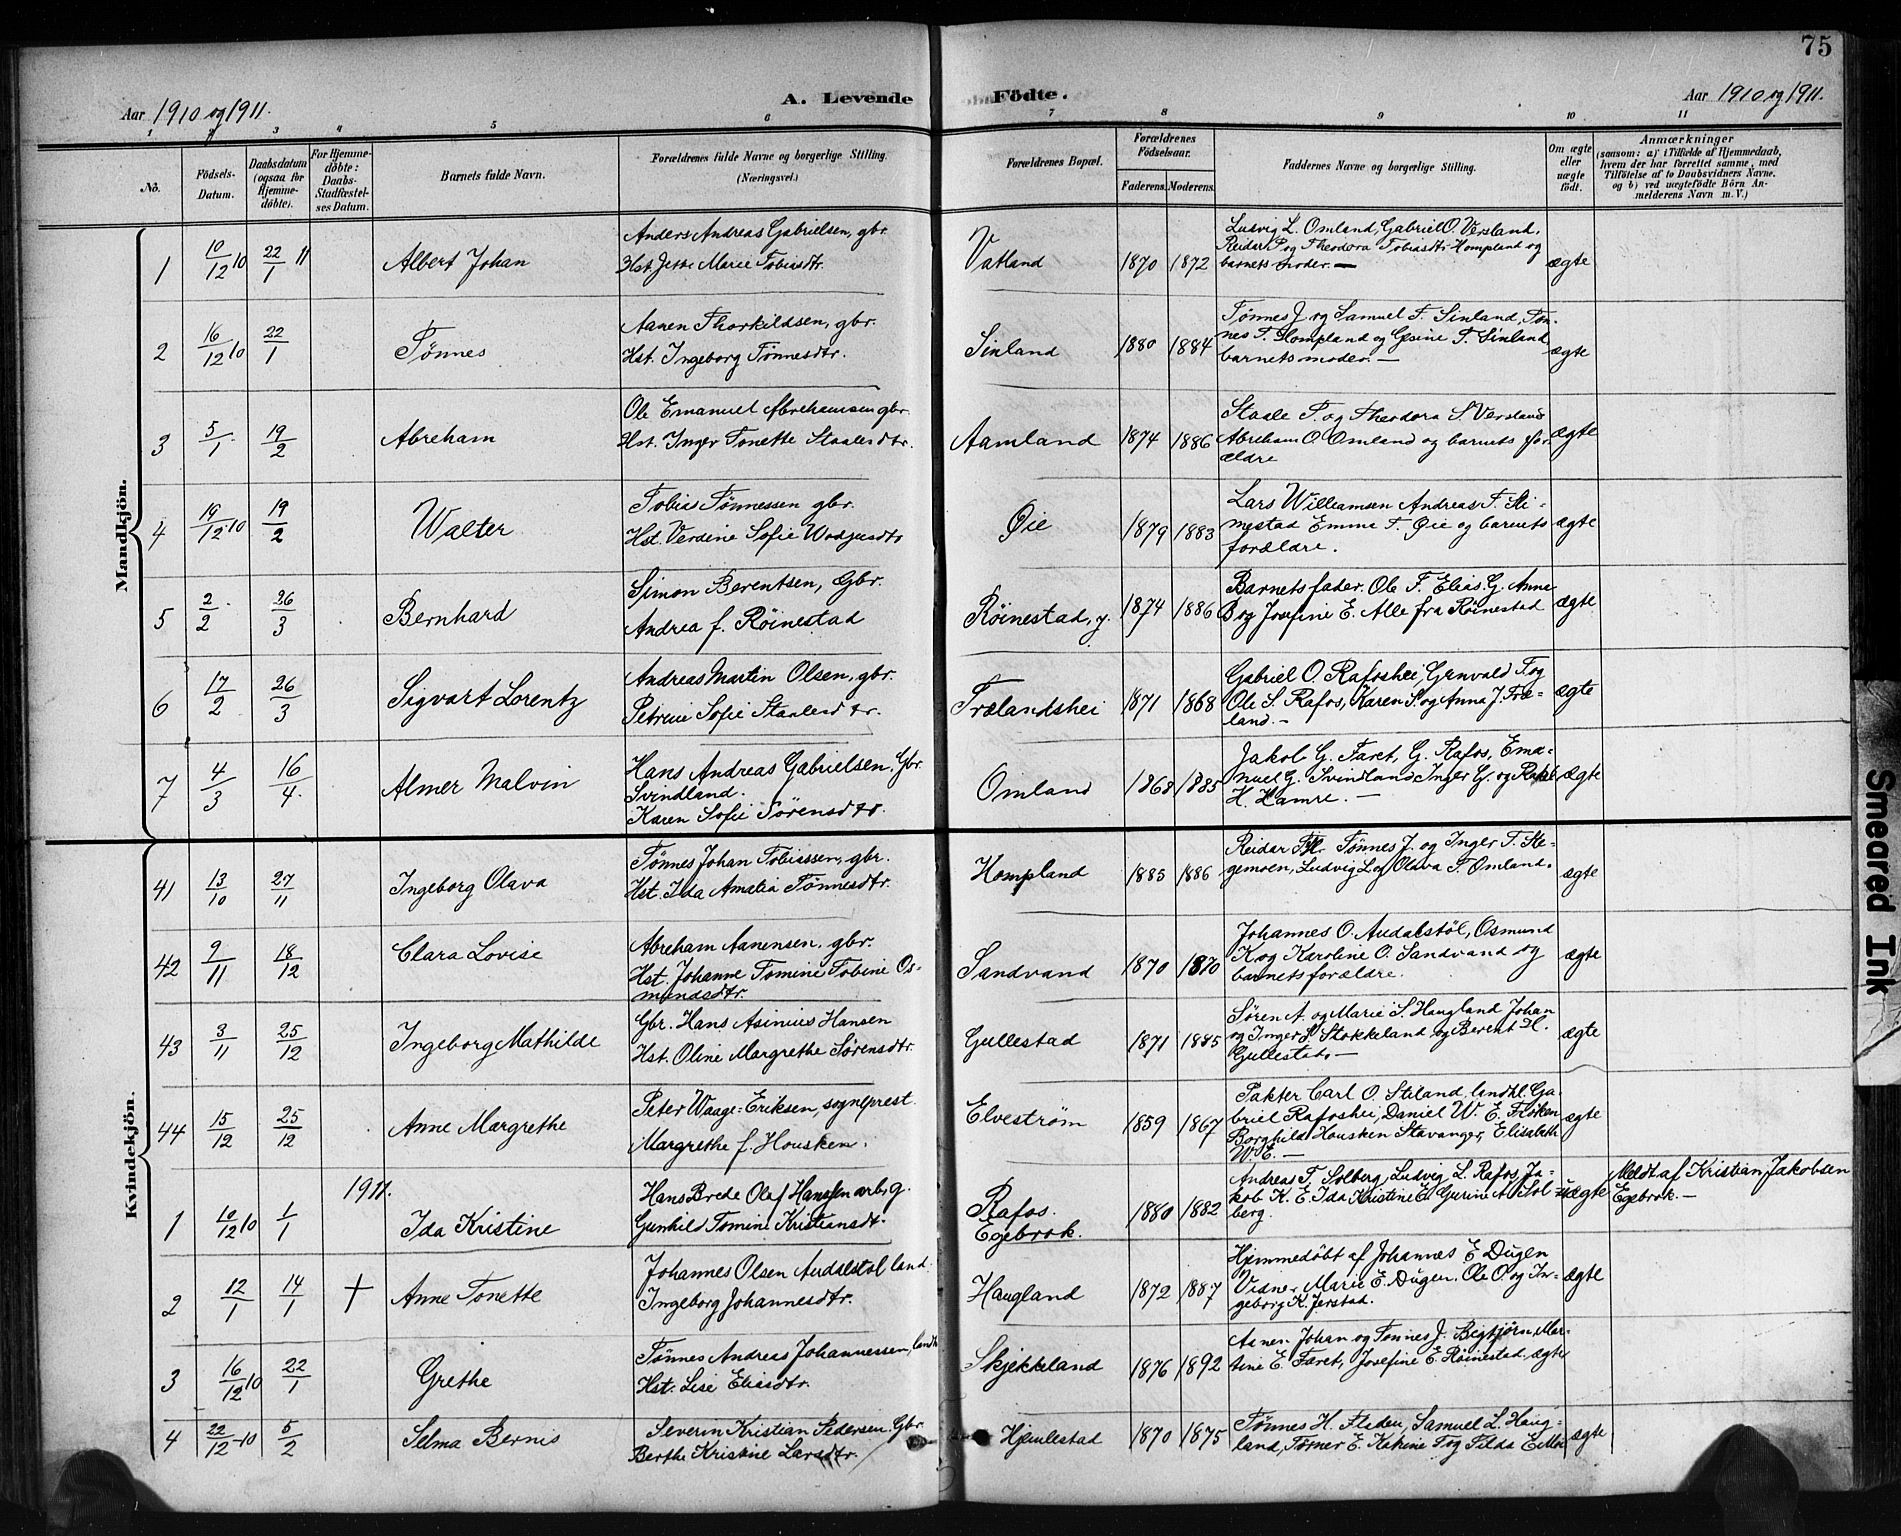 75
Aar 1910 og 1911.
A. Levende Födte.
Aar 1910 og 1911.
1 2 3 4 5 6 7 8 9 10 11
No.
Födsels-Datum.
Daabsdatum (ogsaa for Hjemme-döbte).
For Hjemme-döbte: Daabs-Stadfæstel-ses Datum.
Barnets fulde Navn.
Forældrenes fulde Navne og borgerlige Stilling.
(Næringsvei.)
Forældrenes Bopæl.
Forældrenes Födselsaar.
Faderens. Moderens.
Faddernes Navne og borgerlige Stilling.
Om ægte eller uægte födt.
Anmærkninger
(saasom: a) i Tilfælde af Hjemmedaab,
hvem der har forrettet samme, med
Tilföielse af to Daabsvidners Navne,
og b) ved uægtefödte Börn An-
melderens Navn m. V.)
Mandkjön.
1 10/12 10 22/1 11 Albert Johan
Anders Andreas Gabrielsen, gbr.
Hst. Jette Marie Tobiasdtr.
Vatland 1870 1872
Ludvig L. Omland, Gabriel O. Versland,
Reidar P. og Theodora Tobiasdtr. Hompland og
barnets moder. —
ægte
2 16/12 10 22/1 Tønnes
Aanen Thorkildsen, gbr.
Hst. Ingeborg Tønnesdtr.
Sinland 1880 1884
Tønnes J. og Samuel T. Sinland, Tøn-
nes T. Hompland og Gesine T. Sinland
barnets moder. —
ægte
3 5/1 19/2 Abreham
Ole Emanuel Abrehamsen gbr.
Hst. Inger Tonette Staalesdtr.
Aamland 1874 1886
Staale T. og Theodora S. Versland
Abreham O. Omland og barnets for-
ældre
ægte
4 19/12 10 19/2 Walter
Tobias Tønnessen gbr.
Hst. Verdine Sofie
Øie 1879 1883
Lars Williamsen Andreas T. Sti-
mestad Emme T. Øie og barnets
forældre.
ægte
5 2/2 26/3 Bernhard
Simon Berentsen, Gbr.
Andrea f. Röinestad
Röinestad, y. 1874 1886
Barnets fader. Ole F. Elias G. Anne
B og Josefine E. Alle fra Röinestad
ægte
6 17/2 26/3 Sigvart Lorentz
Andreas Martin Olsen, gbr.
Petrine Sofie Staalesdtr.
Trælandshei 1871 1868
Gabriel O. Rafoshei, Genvald T og
Ole S. Rafos, Karen S. og Anna J. Træ-
land. —
ægte
7 4/3 16/4 Almer Malvin
Hans Andreas Gabrielsen. Gbr.
Svindland.
Karen Sofie Sörensdtr.
Omland 1868 1885
Jakob G. Faret, G. Rafos, Ema-
nuel G. Svindland, Inger G. og Rakel
H. Lamre. —
ægte
Kvindekjön.
41 13/10 27/11 Ingeborg Olava
Tønnes Johan Tobiassen, gbr.
Hst. Ida Amalia Tønnesdtr.
Hompland 1885 1886
Reidar Tønnes J. og Inger T. Ste-
gemoen, Ludvig L og Olava T. Omland.
ægte
42 9/11 18/12 Clara Lovise
Abreham Aanensen, gbr.
Hst. Johanne Tomine Tobine Os-
mundsdtr.
Sandvand 1870 1870
Johannes O. Audalstöl, Osmund
K og Karoline O. Sandvand og
barnets forældre.
ægte
43 3/11 25/12 Ingeborg Mathilde
Gbr. Hans Asinius Hansen
Hst. Oline Margrethe Sørensdtr.
Gullestad 1871 1885
Søren A. og Marie S. Haugland Johan
og Inger S. Stokkeland og Berent H.
Gullestad. —
ægte
44 15/12 25/12 Anne Margrethe
Peter Waage-Eriksen, sogneprest.
Margrethe f. Housken.
Elveström 1859 1867
Pakter Carl O. Stiland, landhl. Ga-
briel Rafoshei, Daniel W. E. Fløken
Borghild Housken Stavanger, Elisabeth
W. E. —
ægte
1911.
1 10/12 10 1/1 Ida Kristine
Hans Brede Olaf Hansen arb. g.
Gunhild Tomine Kristiansdt.
Rafos.
Egebrok. 1880 1882
Andreas T. Solberg, Ludvig L. Rafos, Ja-
kob K. E. Ida Kristine E. Gurine A. Sol-
berg.
uægte
Meldt af Kristian Jakobsen
Egebrok. —
2 12/1 14/1 † Anne Tonette
Johannes Olsen Audalstöl land.
Ingeborg Johannesdtr.
Haugland 1872 1887
Hjemmedöbt af Johannes E Dugen
Vidner Marie E. Dugen. Ole O. og In-
geborg K. Jerstad.
ægte
3 16/12 10 22/1 Grethe
Tönnes Andreas Johannessen, landb
Hst. Lise Eliasdtr.
Skjekkeland 1876 1892
Aanen Johan og Tønnes J. Bigtjörn, Mar-
tine E. Faret, Josefine E. Röinestad.
ægte
4 22/12 10 5/2 Selma Bernis
Severin Kristian Pedersen. Gbr.
Berthe Kristine Larsdtr.
Hjemlestad 1870 1875
Tönnes H. Fladen, Samuel L. Haug-
land, Tomer E. Katrine T og Tilda
ægte
Smeared Ink